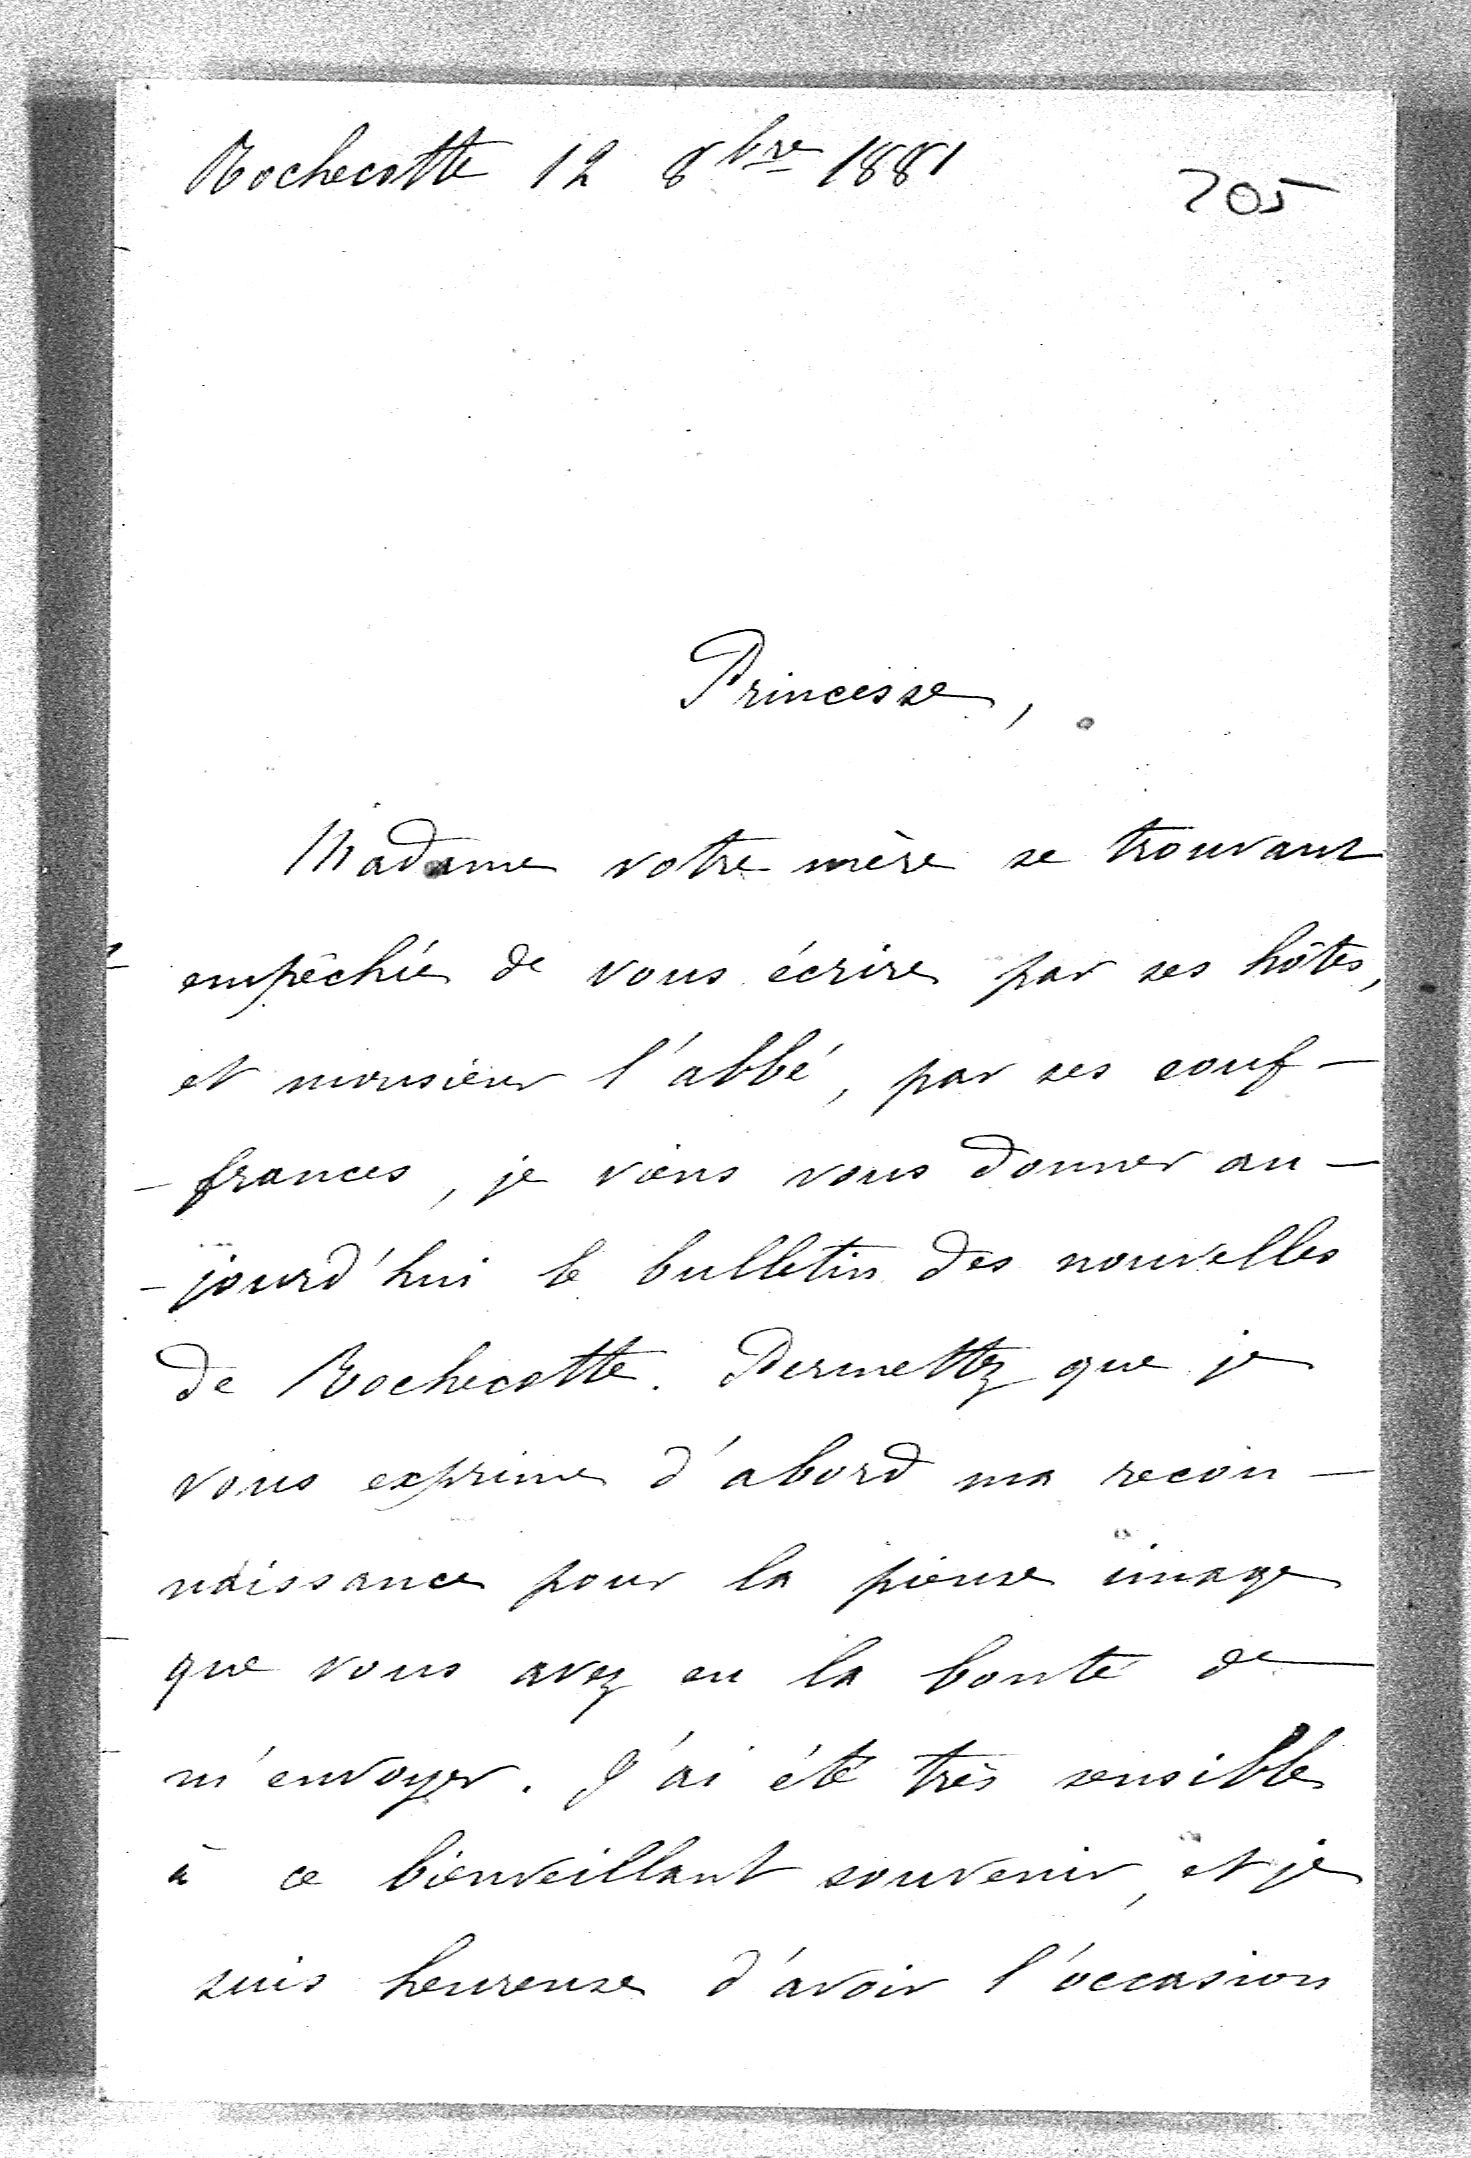 Rochecotte 12 8bre 1881
205
Princesse,
Madame votre mère se trouvant
empêchée de vous écrire par ses hôtes,
et monsieur l'abbé, par ses souf-
-frances, je viens vous donner au-
-jourd'hui le bulletin des nouvelles
de Rochecotte. Permettez que je
vous exprime d'abord ma recon-
naissance pour la pieuse image
que vous avez eu la bonté de
m'envoyer. J'ai été très sensible
à ce bienveillant souvenir, et je
suis heureuse d'avoir l'occasion